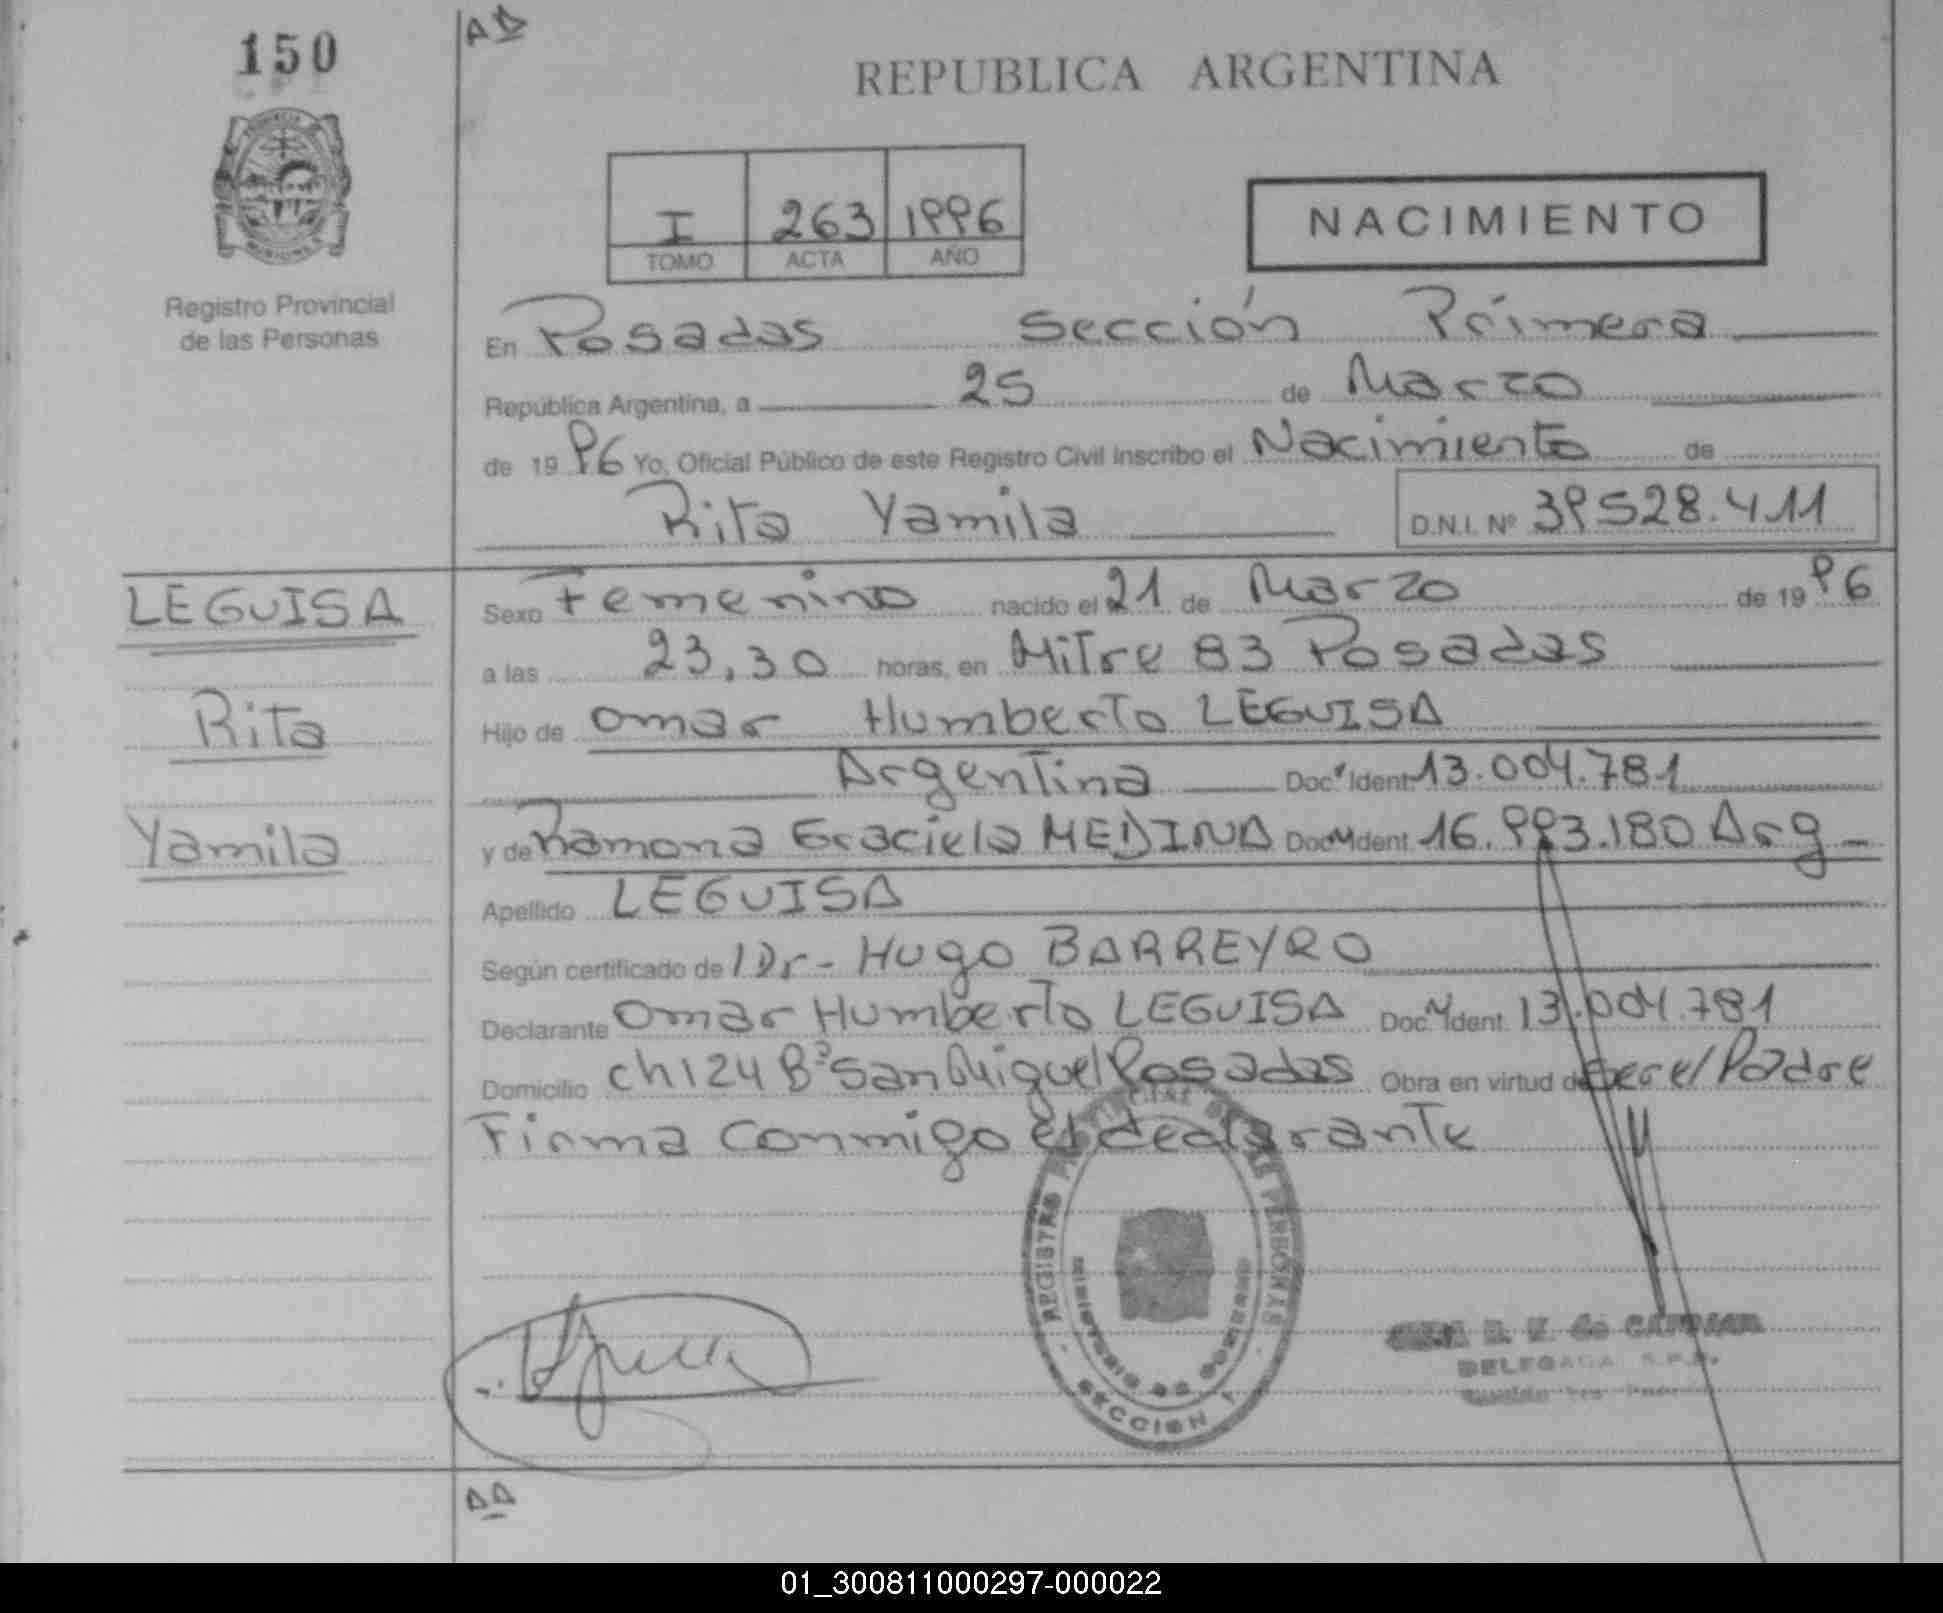 150
REPUBLICA ARGENTINA
I 263 1996
TOMO ACTA AÑO
NACIMIENTO
Registro Provincial
de las Personas
En Posadas Sección Primera
República Argentina, a 25 de Marzo
de 1996 Yo, Oficial Público de este Registro Civil inscribo el Nacimiento de
Rita Yamila D.N.I. Nº 39528.411
LEGUISA
Rita
Yamila
Sexo Femenino nacido el 21 de Marzo de 1996
a las 23,30 horas, en Mitre 83 Posadas
Hijo de Omar Humberto LEGUISA
Argentina Doc. Ident. 13.004.781
y de Ramona Graciela MEDINA Doc. Ident. 16.993.180 Arg
Apellido LEGUISA
Según certificado de Dr- Hugo BARREYRO
Declarante Omar Humberto LEGUISA Doc. Ident. 13.004.781
Domicilio ch124 Bº San Miguel Posadas Obra en virtud de Ser el Padre
Firma Conmigo el declarante
REGISTRO PROVINCIAL DE LAS PERSONAS
MINISTERIO DE GOBIERNO
SECCION 1
DELEGADA
01_300811000297-000022